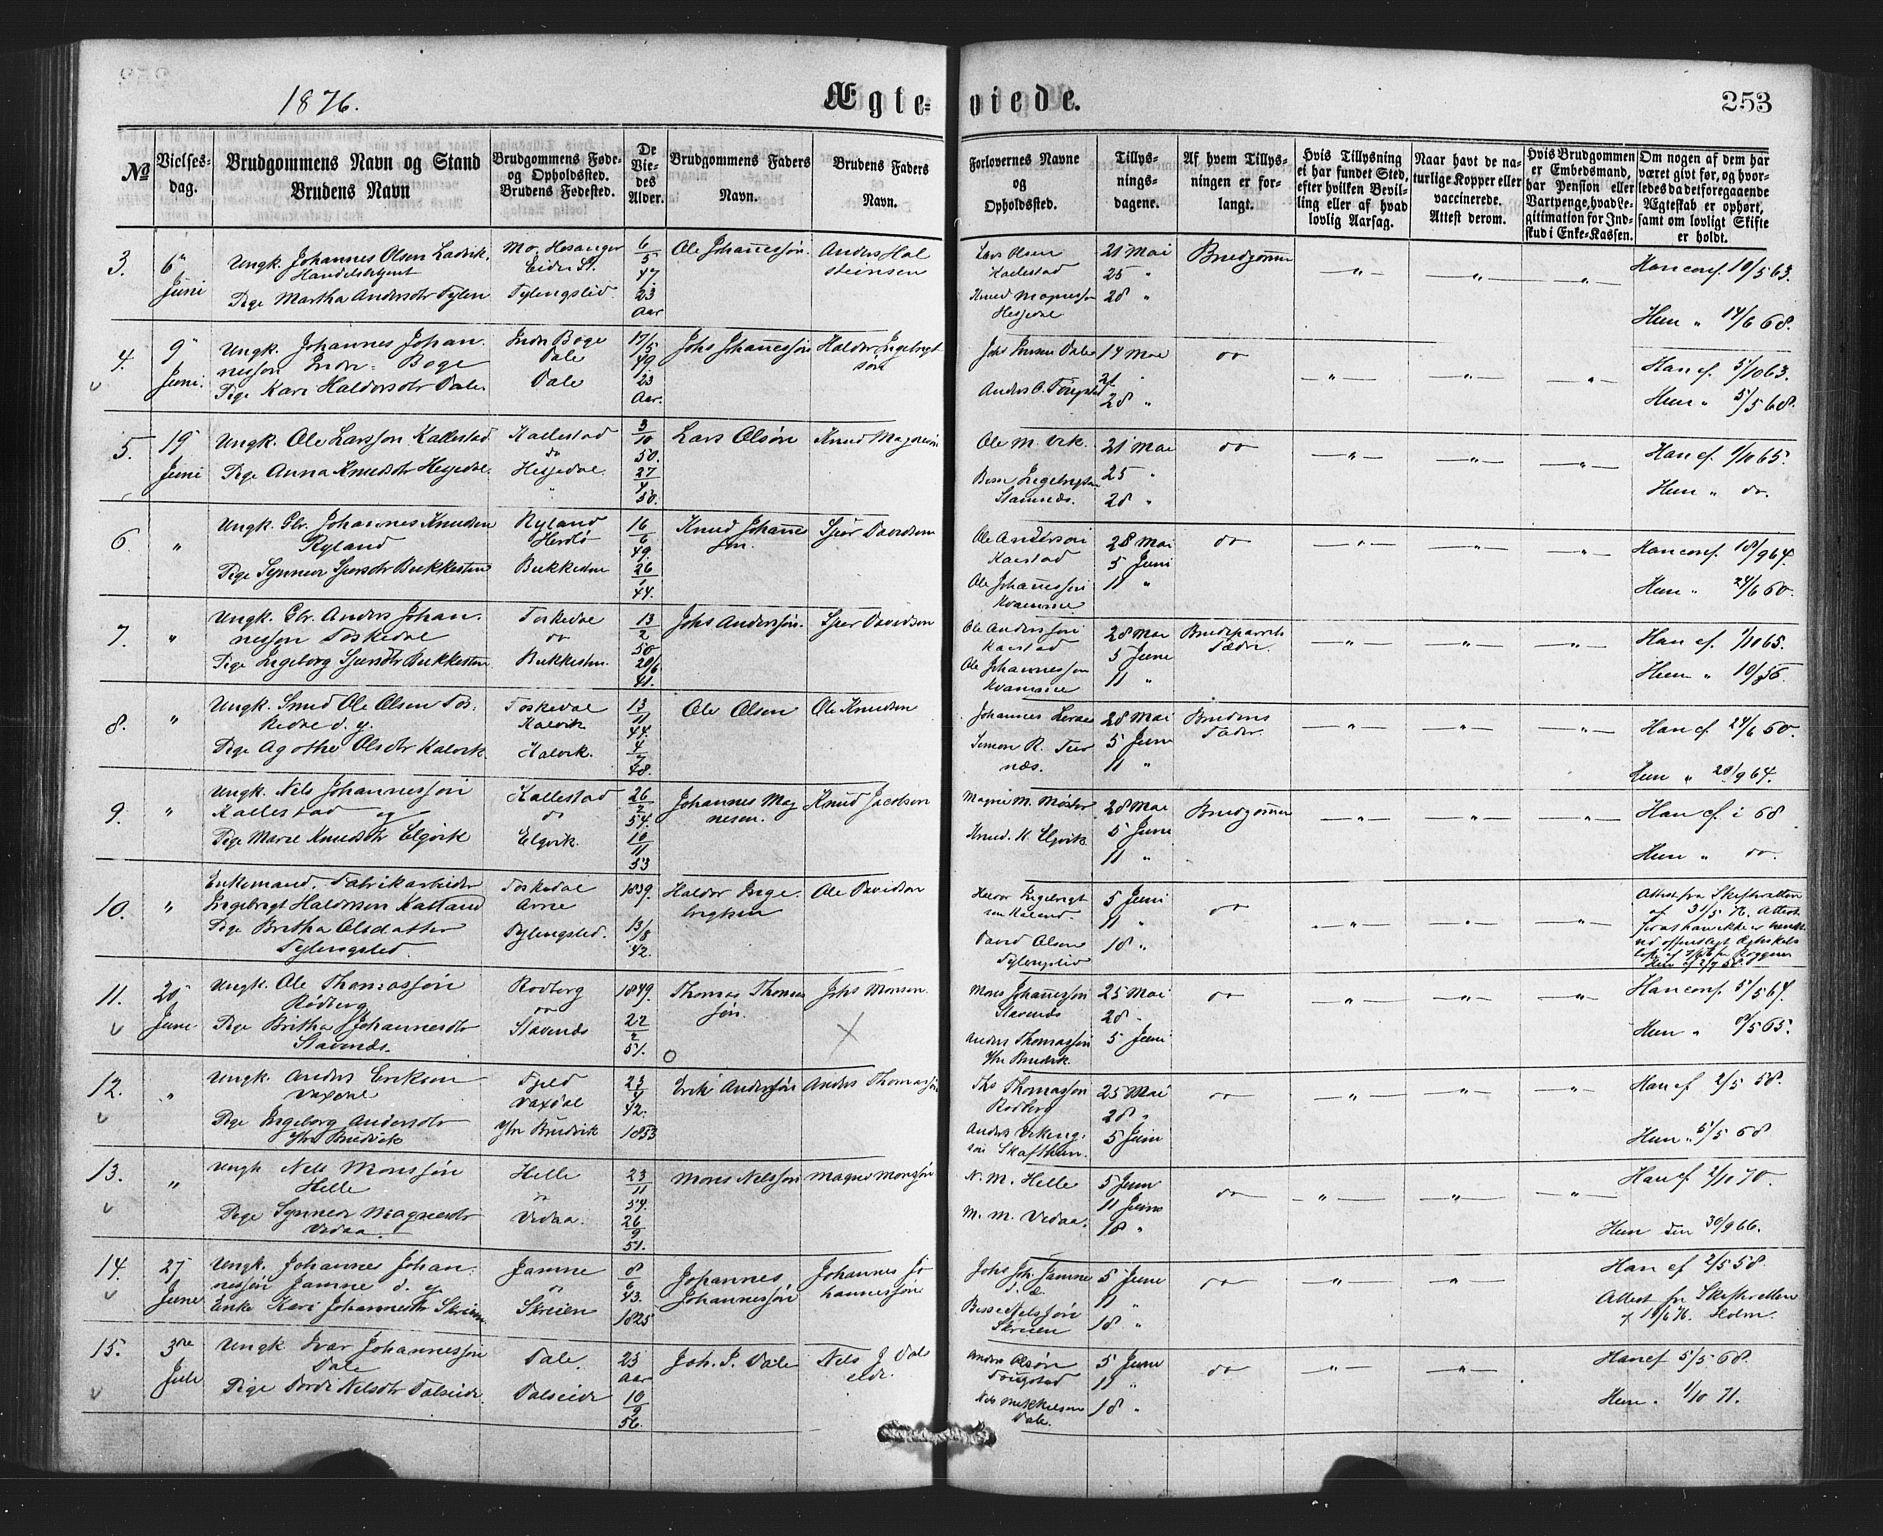 1876.
Ægte-
viede.
253
№
Vielses-
dag.
Brudgommens Navn og Stand
Brudens Navn
Brudgommens Føde-
og Opholdssted.
Brudens Fødested.
De
Vie-
des
Alder.
Brudgommens Faders
Navn.
Brudens Faders
Navn.
Forlovernes Navne
og
Opholdssted.
Tillys-
nings-
dagene.
Af hvem Tillys-
ningen er for-
langt.
Hvis Tillysning
ei har fundet Sted,
efter hvilken Bevil-
ling eller af hvad
lovlig Aarsag.
Naar havt de na-
turlige Kopper eller
vaccinerede.
Attest derom.
Hvis Brudgommen
er Embedsmand,
har Pension eller
Vartpenge, hvad Le-
gitimation for Ind-
skud i Enke-Kassen.
Om nogen af dem har
været gift før, og hvor-
ledes da det foregaaende
Ægteskab er ophørt,
samt om lovligt Skifte
er holdt.
3.
6"
Juni
Ungk. Johannes Olsen
Pige Martha Andersdtr Fylen
Fylengslid.
6/5 47.
23
Aar
Ole Johannessøn.
Anders Hal
steinsen
Lars Olsen
Kallestad
Knud Magnesson
Hesjedal
21 Mai
25 "
28 "
Brudgommen
Han conf. 10/5 63.
Hun " 14/6 68.
4.
9"
Juni.
Ungk. Johannes Johan
nesson Indre Boge
Pige Kari Haldorsdtr Dale
Indr Boge
Dale
Dale
17/5 49.
23
Aar.
Johs Johannessøn
Haldor Engebrigt
søn
14 Mai
21 "
28 "
do
Han cf. 5/10 63.
Hun " 5/5 68.
5.
19
Juni
Ungk. Ole Larsson Kallestad
Pige Anna Knudsdtr Hesjedal.
Kallestad
do
Hesjedal
3/10 50.
27/4 50.
Lars Olsøn
Knud Magnesøn
Ole M. Vik.
Stamnes.
21 Mai
25 "
28 "
do
Han cf. 1/10 65.
Hun " do.
6.
"
Ungk. Gbr. Johannes Knudsen
Ryland
Pige Synneva Sjursdtr Bukkesten
Ryland
Herdlø
Bukkesten
16/6 49.
26/1 44.
Knud Johanne
søn.
Sjur Davidsen
Ole Anderson
Karstad
Ole Johannessøn
Kvamme
28 Mai
5 Juni
11 "
do
Han conf. 18/9 64.
Hun " 24/6 60.
7.
"
Ungk. Gbr. Anders Johan
nesson Toskedal
Pige Ingeborg Sjursdtr Bukkesten
Toskedal
do
Bukkesten.
13/2 50
20/6 41.
Johs Anderssøn.
Sjur Davidsen
Ole Anderssøn
Karstad
Ole Johannesson
Kvamme
28 Mai
5 Juni
11 "
Brudeparrets
Fædre.
Han cf. 1/10 65.
Hun " 10/8 56.
8.
"
Ungk. Smed Ole Olsen Tos-
kedal d. y.
Pige Agathe Olsdtr Kalvik
Toskedal
Kalvik
Kalvik.
13/11 44.
4/7 48.
Ole Olsen
Ole Knudsen
Simon R. Tur
næs.
28 Mai
5 Juni
11 "
Brudens
Fader
Han cf. 24/6 60.
Hun " 28/9 64.
9.
"
Ungk. Nels Johannessøn
Kallestad og
Pige Marie Knudsdtr Elgvik
Kallestad
do
Elgvik
26/2 54.
10/11 53
Johannes Mag
nesen.
Knud Jacobson
Magne M. Moster
Knud. K. Elgvik
28 Mai
5 Juni
11 "
Brudgommen
Han cf i 68
Hun " do.
10.
"
Enkemand. Fabrikarbeider
Engebrigt Haldorsen Kalland
Pige Britha Olsdatter
Fylengslid.
Toskedal
Arne
Fylengslid.
1839.
13/8 42.
Haldor Enge
brigtsen
Ole Davidson
David Olsen
Fylengslid
5 Juni
11 "
18 "
do
Attest fra Skifteretten
af 31/5 76. Attest
11.
20
Juni
Ungk. Ole Thomassøn
Rødberg
Pige Britha Johannesdtr
Stavenæs.
Rodberg
do
Stavenæs
1849.
22/2 51.
Thomas Thomas
søn.
Johs Monsen
Mons Johannessøn
Stavenæs
Anders Thomassøn
Ytr Brudvik.
25 Mai
28 "
5 Juni
do
Han conf. 5/5 64.
Hun " 8/5 65.
12.
"
Ungk. Anders Eriksen
Vaxdal
Pige Ingeborg Andersdtr
Ytr Brudvik
Fjeld
Vaxdal
Ytr Brudvik
23/4 42.
1853
Erik Anderssøn
Anders Thomassøn
Ths Thomasson
Rodberg
Anders Viking-
søn Skafthun.
25 Mai
28 "
5 Juni
do
Han cf 2/5 58.
Hun " 5/5 68
13.
"
Ungk. Nels Monssøn
Helle
Pige Synneva Magnesdtr
Vidaa.
Helle
do
Vidaa.
23/11 54.
26/9 51.
Mons Nelssøn
Magne Monssøn
N. M. Helle
M. M. Vidaa.
5 Juni
11 Juni
18 "
do
Han cf. 2/10 70.
Hun den 30/9 66.
14.
27
Juni
Ungk. Johannes Johan-
nessøn Jamne d. y.
Enke Kari Johannesdtr Skreien
Jamne
do
Skreien
8/6 43.
1825
Johannes
Johannessøn
Johannes Jo
hannessøn
Johs Joh. Jamne
Skreien
5 Juni
11 "
18 "
do
Han cf 2/5 58.
Attest fr Skifteretten
15.
3die
Juli
Ungk. Ivar Johannesson
Dale
Pige Dordi Nelsdtr Dalseide
Dale.
Dalseide
23
Aar
10/9 56.
Joh. I. Dale
Nels J. Dals
eide.
Anders Olsøn
Nels Mikkelsen
Dale.
5 Juni
11 "
18 "
do
Han cf 5/5 68.
Hun " 1/10 71.